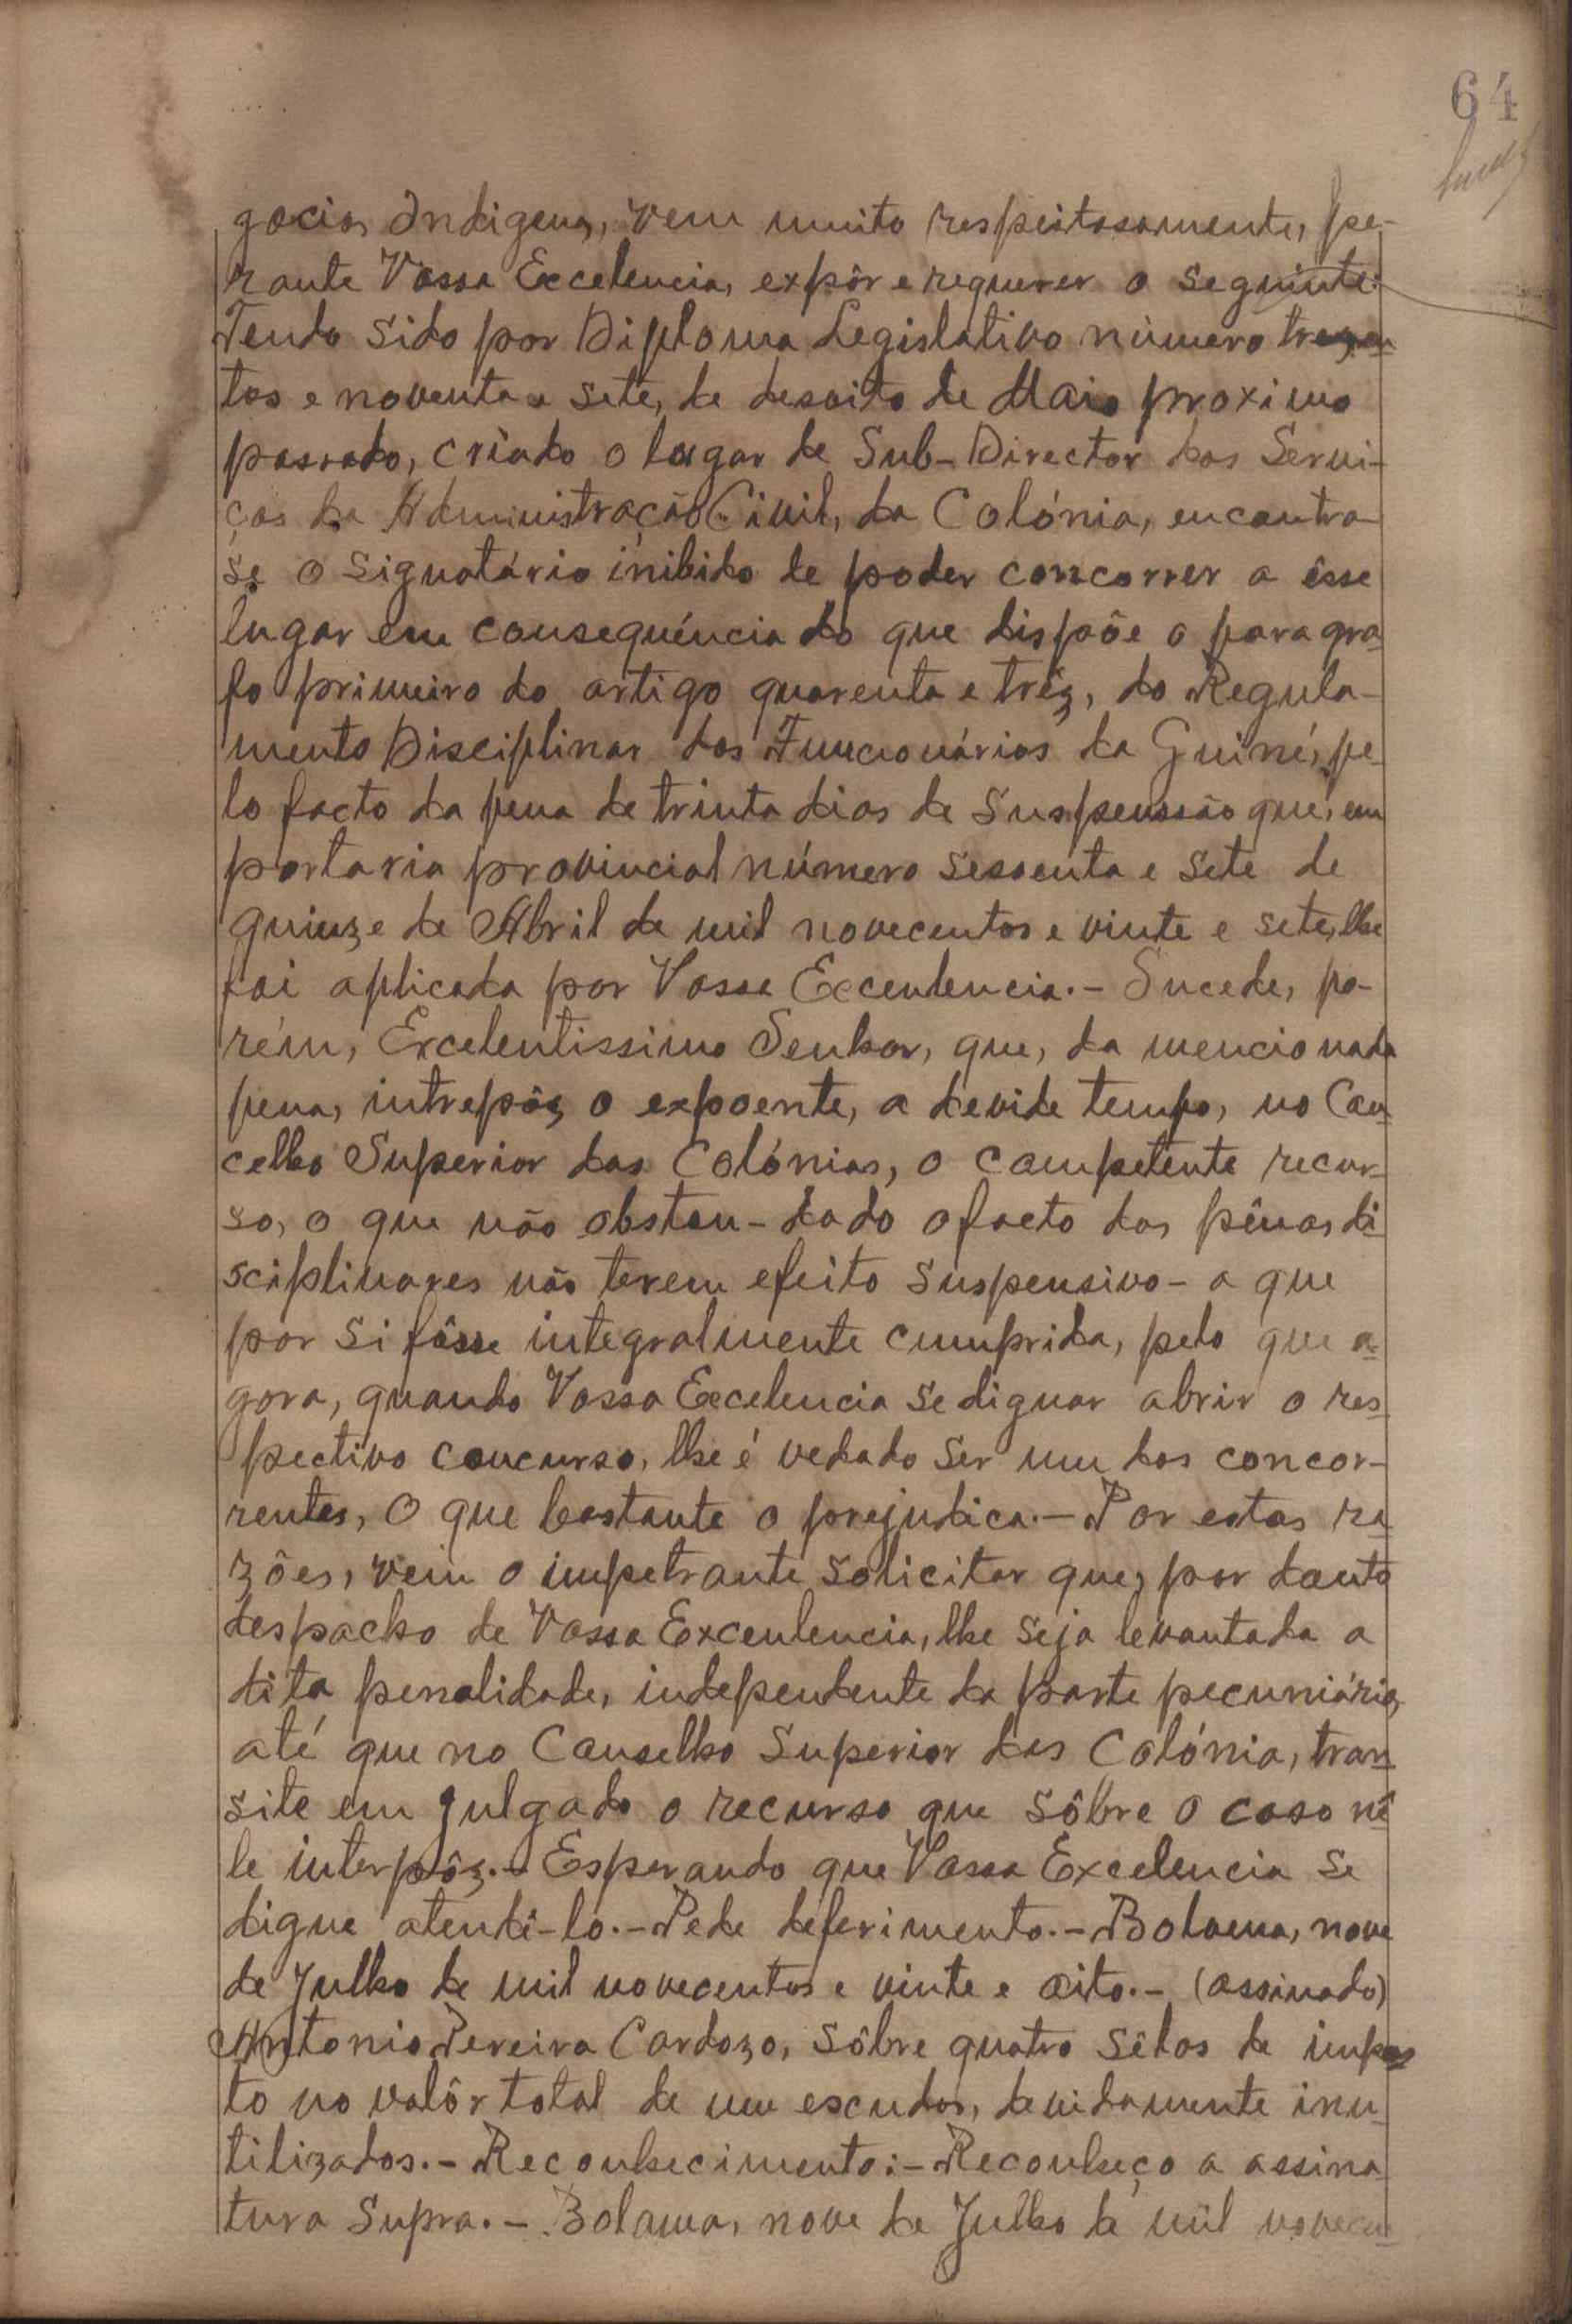 64
gocios Indigenas, vem muito respeitosamente, pe-
rante Vossa Excelencia, expôr e requerer o seguinte:
Tendo sido por Diploma Legislativo número trezen-
tos e noventa e sete, de desoito de Maio proximo
passado, criado o lugar de Sub-Director dos Servi-
ços da Administração Civil, da Colónia, encontra-
se o signatário inibido de poder concorrer a êsse
lugar em consequência do que dispõe o paragra-
fo primeiro do artigo quarenta e tréz, do Regula-
mento Disciplinar dos Funcionários da Guiné, pe-
lo facto da pena de trinta dias de suspenssão que, em
portaria provincial número sessenta e sete de
quinze de Abril de mil novecentos e vinte e sete, lhe
foi aplicada por Vossa Excenlencia.- Sucede, po-
rém, Excelentissimo Senhor, que, da mencionada
pena, intrepôz o expoente, a devide tempo, no Con-
celho Superior das Colónias, o competente recur-
so, o que não obstou - dado o facto das pênas di-
sciplinares não terem efeito suspensivo - a que
por si fôsse integralmente cumprida, pelo que a-
gora, quando Vossa Excelencia se dignar abrir o res-
pectivo concurso, lhe é vedado ser um dos concor-
rentes, o que bastante o prejudica.- Por estas ra-
zões, vem o impetrante solicitar que, por douto
despacho de Vossa Excenlencia, lhe seja levantada a
dita penalidade, independente da parte pecuniária,
até que no Conselho Superior das Colónia, tran-
site em julgado o recurso que sôbre o caso nê-
le interpôz.- Esperando que Vossa Excelencia se
digne atendê-lo.- Pede deferimento.- Bolama, nove
de Julho de mil novecentos e vinte e oito.- (assinado)
Antonio Pereira Cardozo, sôbre quatro sêlos de impos-
to no valôr total de um escudos, devidamente inu-
tilizados.- Reconhecimento:- Reconheço a assina-
tura supra.- Bolama, nove de Julho de mil novecen-